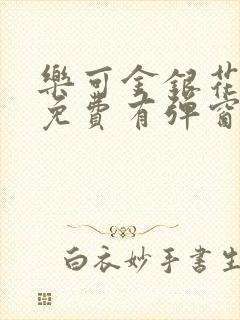 樂可金銀花
免費有彈窗
白衣妙手書生